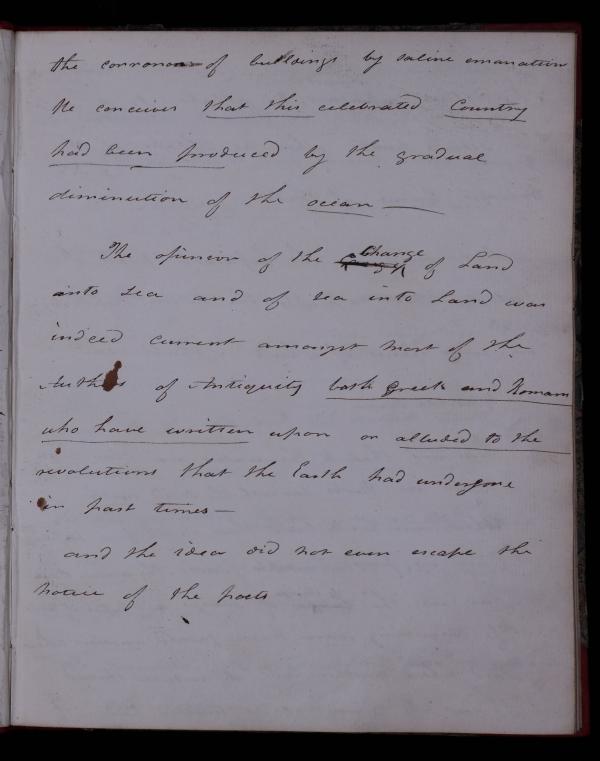 the corrosion of buildings by saline emanation
He conceives that this celebrated Country
had been produced by the gradual
diminution of the ocean —
The opinion of the Change of Land
into sea and of sea into Land was
indeed current amongst most of the
Authors of Antiquity both Greek and Romans
who have written upon or alluded to the
revolutions that the Earth had undergone
in past times —
and the idea did not even escape the
notice of the poets